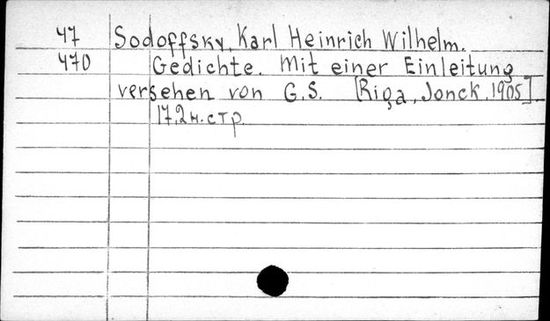 47 Sodoffsky, Karl Heinrich Wilhelm.
470 Gedichte. Mit einer Einleitung
versehen von G.S. [Riga, Jonck, 1905].
17,2н.стр.